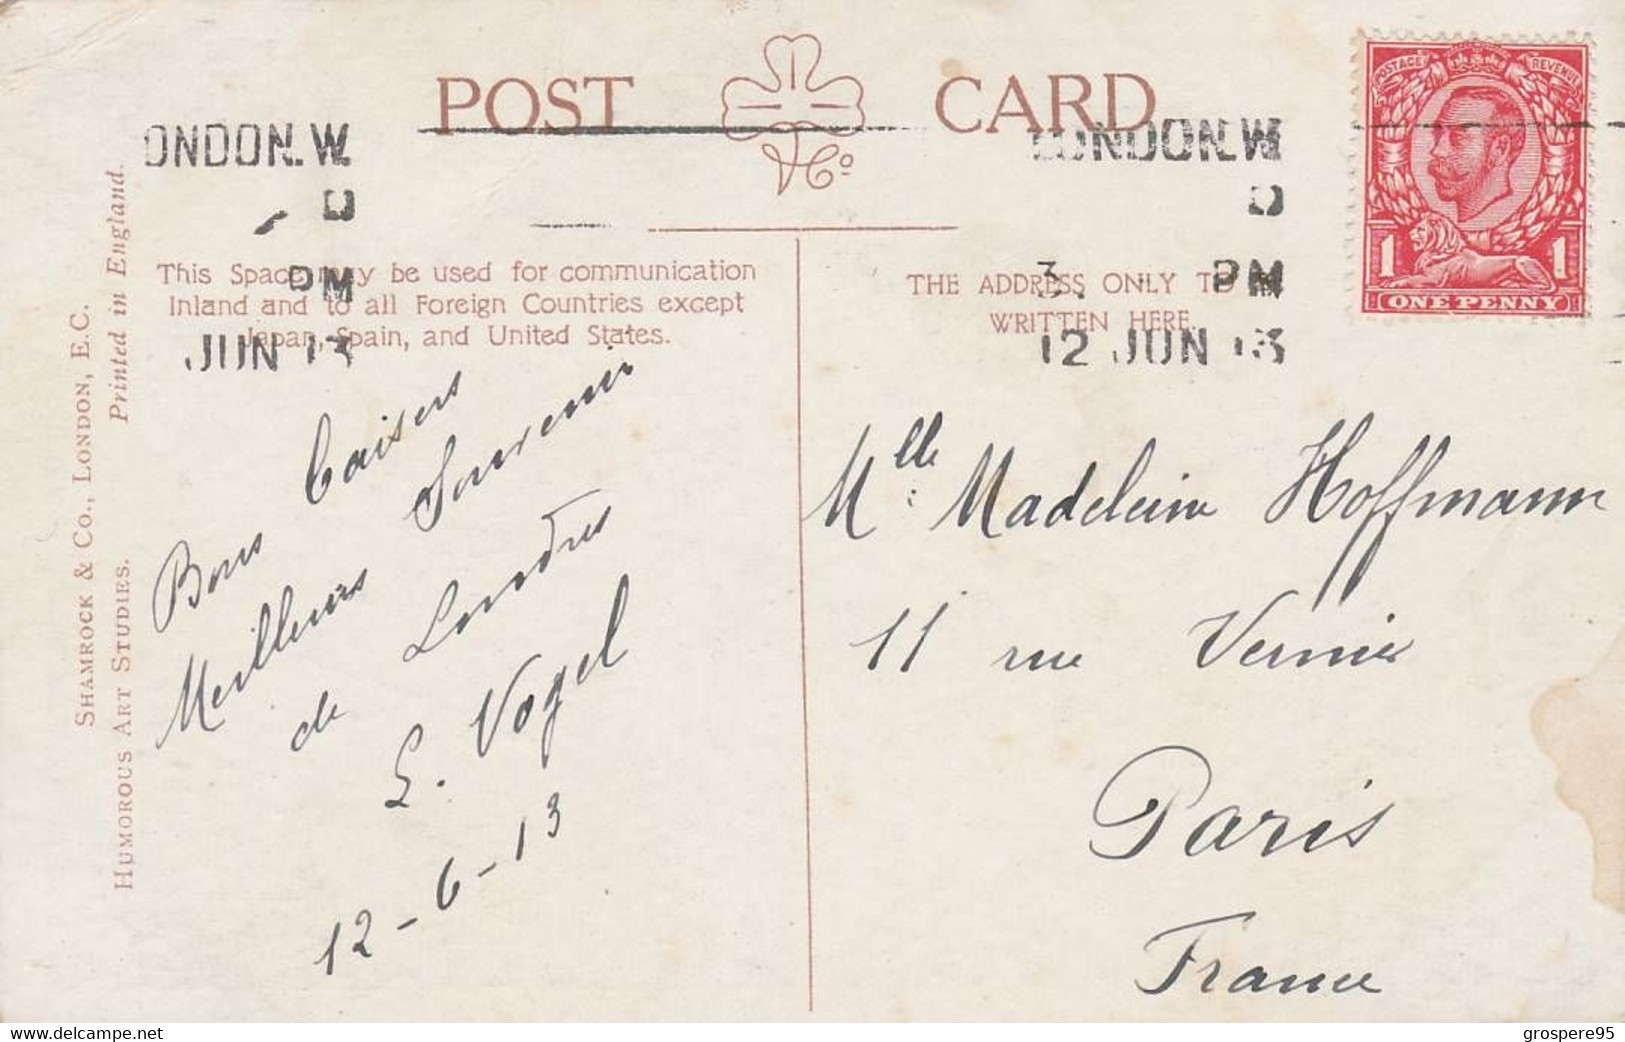 POST CARD
& Co
LONDON.W
PM
JUN 13
LONDON.W
3. PM
12 JUN 13
POSTAGE REVENUE
1 1
ONE PENNY
This Space may be used for communication
Inland and to all Foreign Countries except
Japan, Spain, and United States.
THE ADDRESS ONLY TO BE
WRITTEN HERE
SHAMROCK & CO., LONDON, E.C.
HUMOROUS ART STUDIES. Printed in England.
Bons Baisers
Meilleurs Souvenir
de Londres
L. Vogel
12-6-13
Mlle Madeleine Hoffmann
11 rue Vernier
Paris
France
grospere95